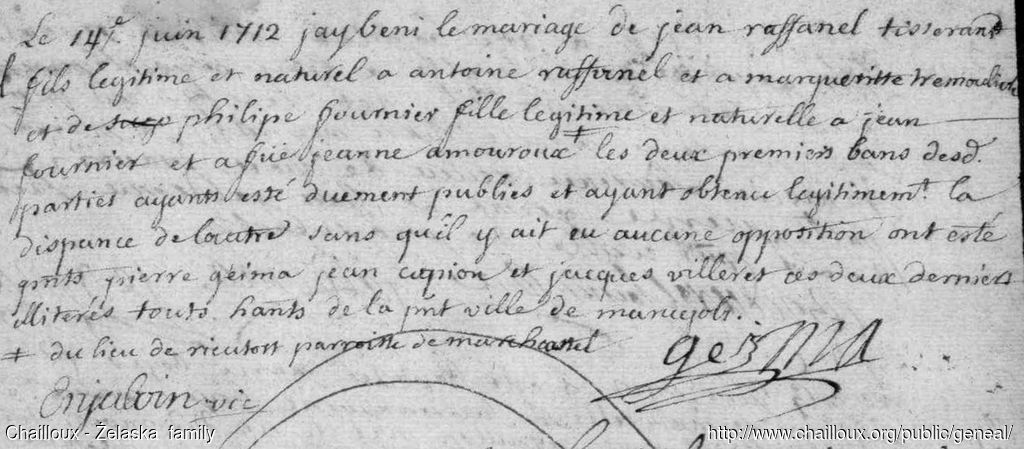 Le 14e. juin 1712 jay beni le mariage de jean raffanel tisserant
fils legitime et naturel a antoine raffanel et a margueritte tremouliere
et de philipe fournier fille legitime et naturelle a jean
fournier et a füe jeanne amouroux ‡ les deux premiers bans desd.
parties ayants esté duement publies et ayant obtenu legitimemt. la
dispance de lautre sans qu'il y ait eu aucune opposition ont esté
pnts pierre geima jean copion et jacques villeret ces deux derniers
illiterés touts hants de la pnt ville de maruejols.
‡ du lieu de rieutort parroisse de marchastel
geima
Enjalvin vic
Chailloux - Želaska family
http://www.chailloux.org/public/geneal/